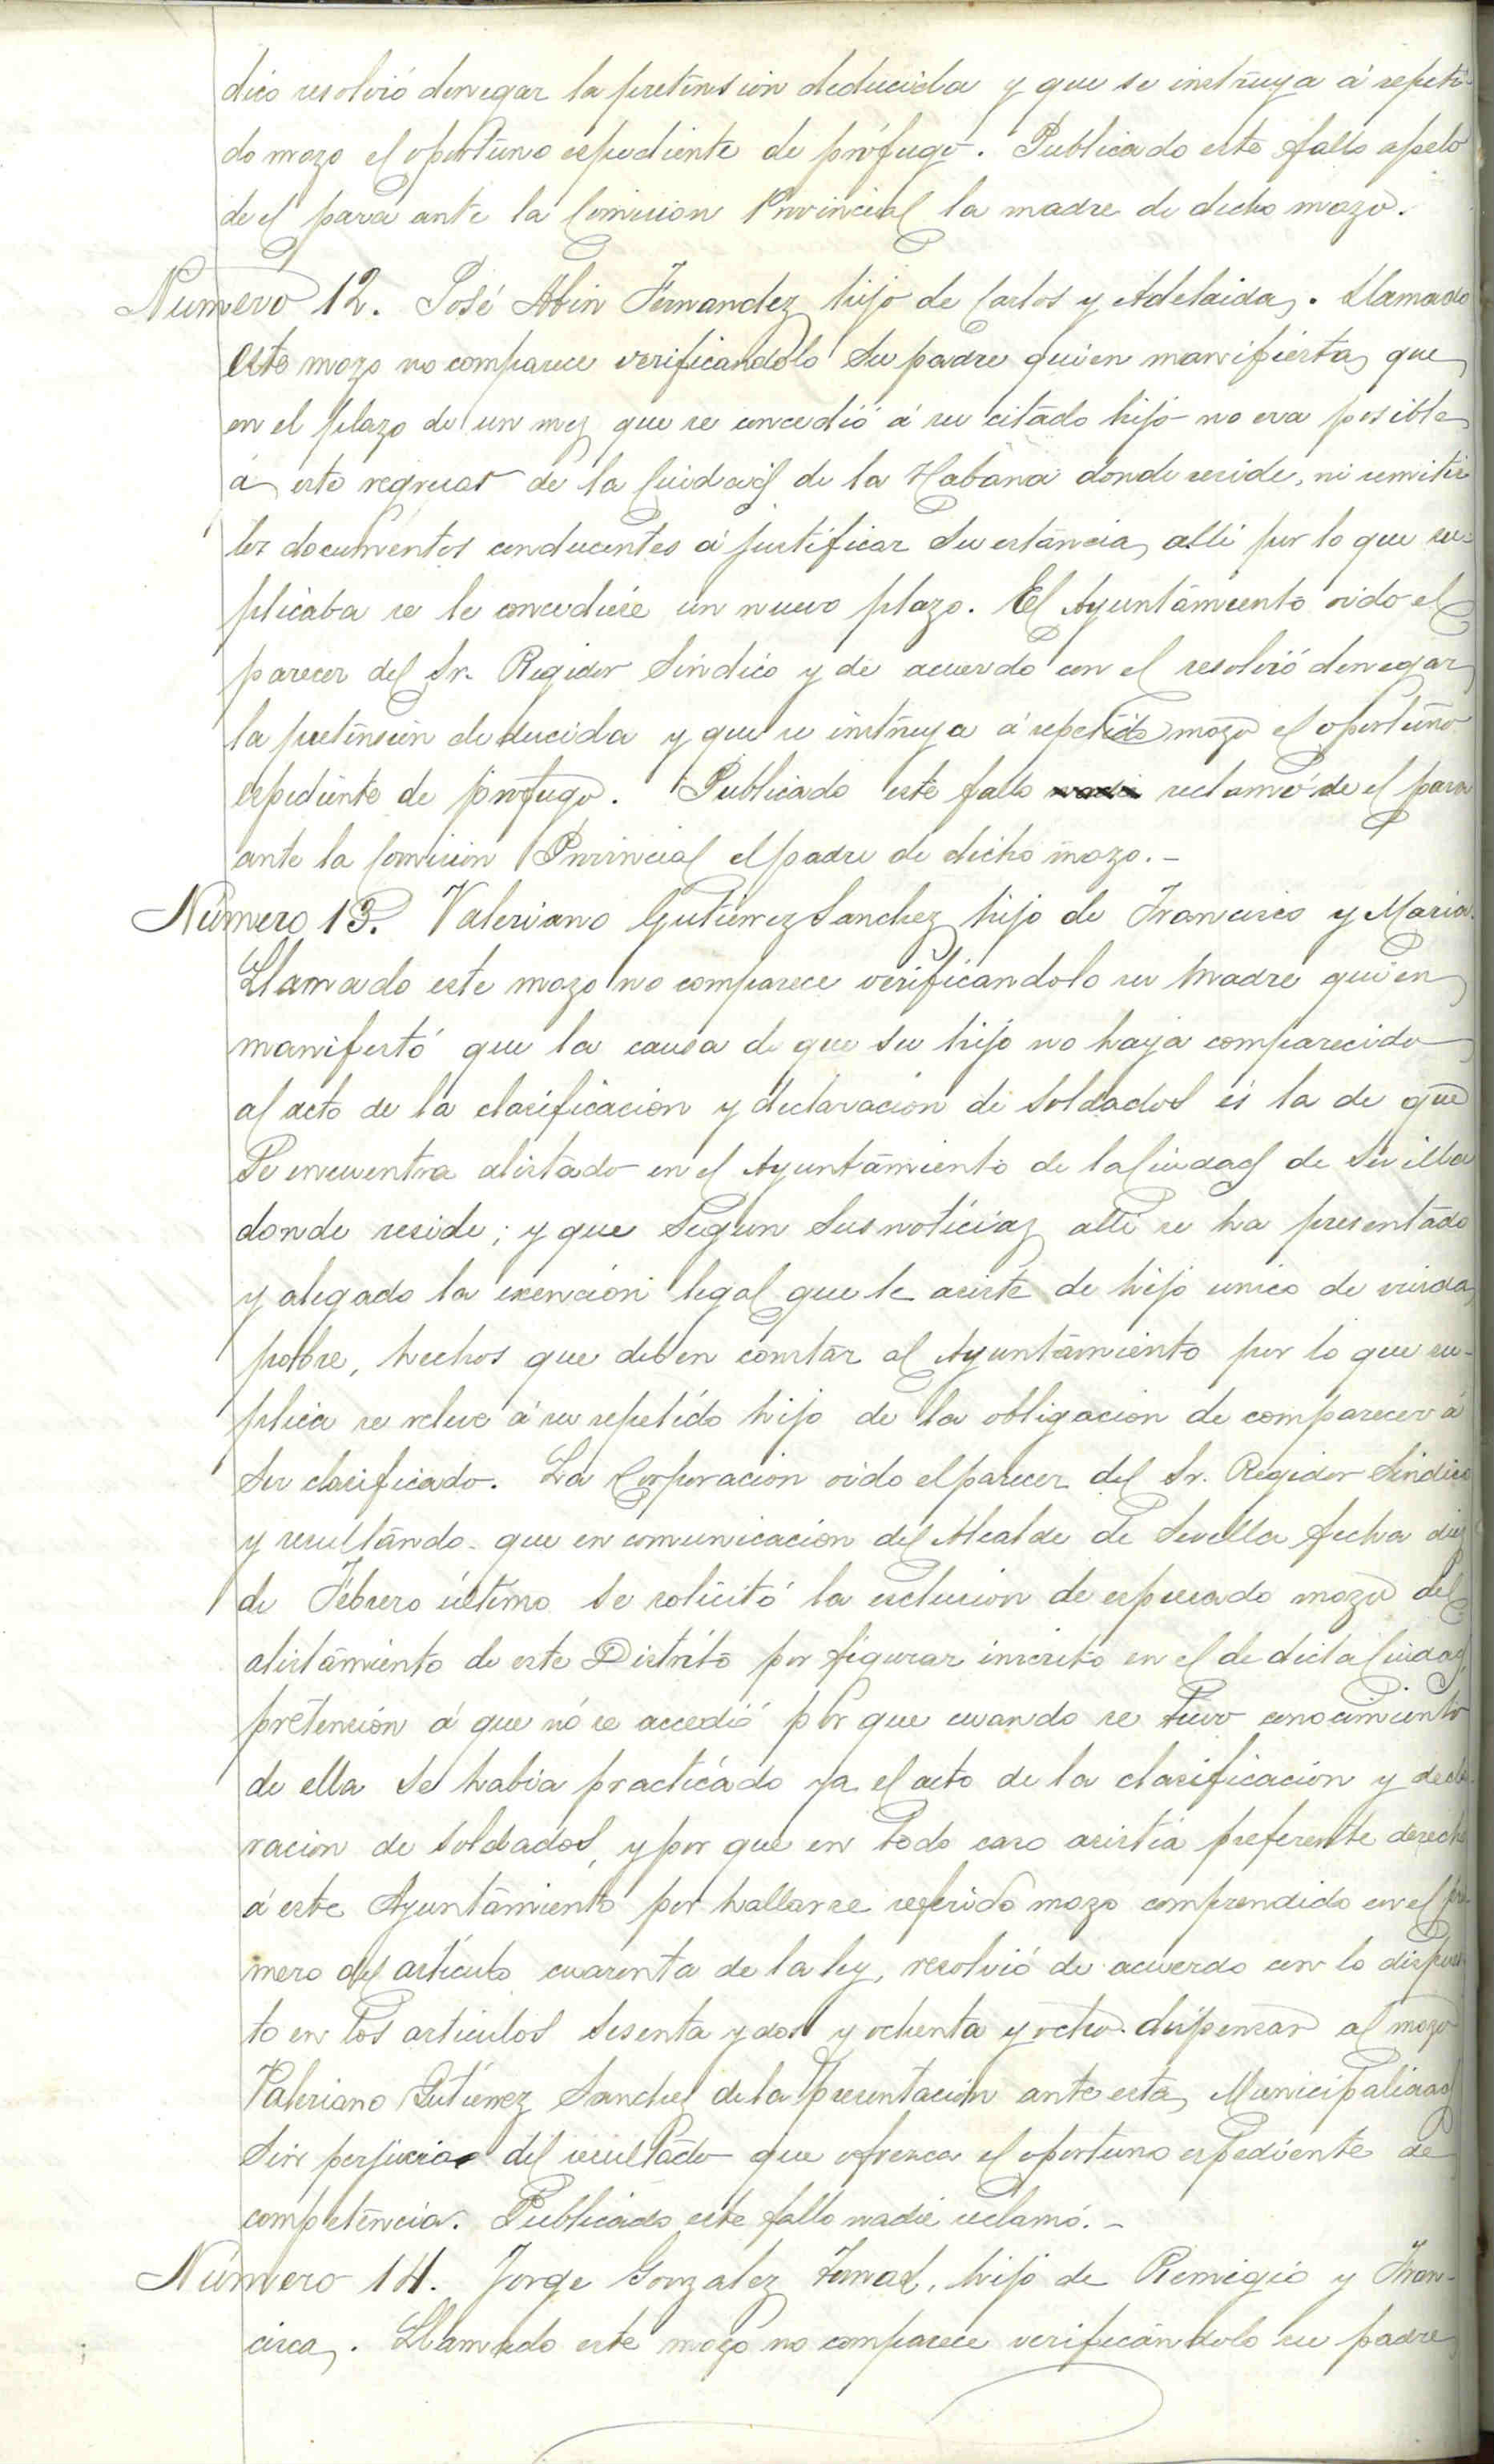 dico resolvió denegar la pretension deducida y que se instruya á repeti-
do mozo el oportuno espediente de prófugo. Publicado este fallo apeló
de el para ante la Comision Provincial la madre de dicho mozo.
Número 12. José Abin Fernandez hijo de Carlos y Adelaida. Llamado
este mozo no comparece verificandolo su padre quien manifiesta que
en el plazo de un mez que se concedió á su citado hijo no era posible
á este regresar de la Ciudad de la Habana donde reside, ni remitir
los documentos conducentes á justificar su estancia alli por lo que su-
plicaba se le concediese un nuevo plazo. El Ayuntamiento oido el
parecer del Sr. Regidor Sindico y de acuerdo con el resolvió denegar
la pretension deducida y que se instruya á repetido mozo el oportuno
espediente de prófugo. Publicado este fallo reclamó de el para
ante la Comision Provincial el padre de dicho mozo.-
Número 13. Valeriano Gutierrez Sanchez hijo de Francisco y Maria.
Llamado este mozo no comparece verificandolo su madre quien
manifestó que la causa de que su hijo no haya comparecido
al acto de la clasificacion y declaracion de soldados és la de que
se encuentra alistado en el Ayuntamiento de la Ciudad de Sevilla
donde reside; y que segun sus noticiaz alli se ha presentado
y alegado la exención legal que le asiste de hijo unico de viuda
pobre, hechos que deben constar al Ayuntamiento por lo que su-
plica se releve á su repetido hijo de la obligacion de comparecer á
ser clasificado. La Corporacion oido el parecer del Sr. Regidor Sindico
y resultando que en comunicacion del Alcalde de Sevilla fecha diez
de Febrero último se solicitó la esclusion de espresado mozo del
alistamiento de este Distrito por figurar inscrito en el de dicta Ciudad,
pretension á que nó se accedió por que cuando se tuvo conocimiento
de ella se habia practicádo ya el acto de la clasificacion y decla-
racion de soldados, y por que en todo caso asistia preferente derecho
á este Ayuntamiento por hallarse referido mozo comprendido en el pri-
mero del artículo cuarenta de la ley, resolvió de acuerdo con lo dispues-
to en los articulos sesenta y dos y ochenta y ocho dispensar al mozo
Valeriano Gutierrez Sanchez de la presentacion ante esta Municipalidad
sin perjuicio del resultado que ofrezca el oportuno espediente de
competencia. Publicado este fallo nadie reclamó.-
Número 14. Jorge Gonzalez hijo de Remigio y Fran-
cisca. Llamado este mozo no comparece verificándolo su padre